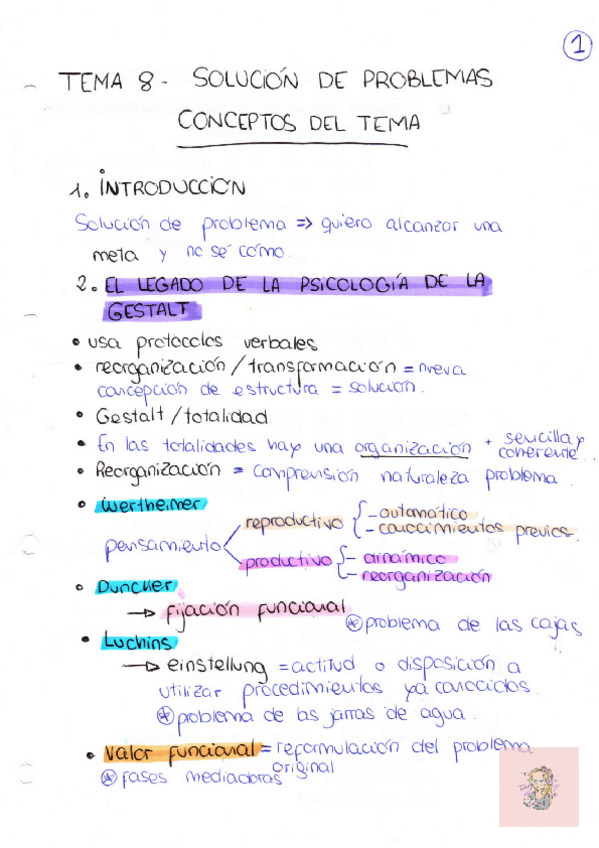 1
TEMA 8 - SOLUCIÓN DE PROBLEMAS
CONCEPTOS DEL TEMA
1. INTRODUCCIÓN
Solución de problema => quiero alcanzar una
meta y no sé cómo.
2. EL LEGADO DE LA PSICOLOGÍA DE LA
GESTALT
• usa protocolos verbales
• reorganización / transformación = nueva
concepción de estructura = solución.
• Gestalt / totalidad
• En las totalidades hay una organización + sencilla y
coherente.
• Reorganización = comprensión naturaleza problema.
• Wertheimer
pensamiento
reproductivo { - automático
- conocimientos previos.
productivo { - dinámico
- reorganización
• Duncker
→ fijación funcional
* problema de las cajas
• Luchins
→ einstellung = actitud o disposición a
utilizar procedimientos ya conocidos.
* problema de las jarras de agua.
• Valor funcional = reformulación del problema
original
* fases mediadoras